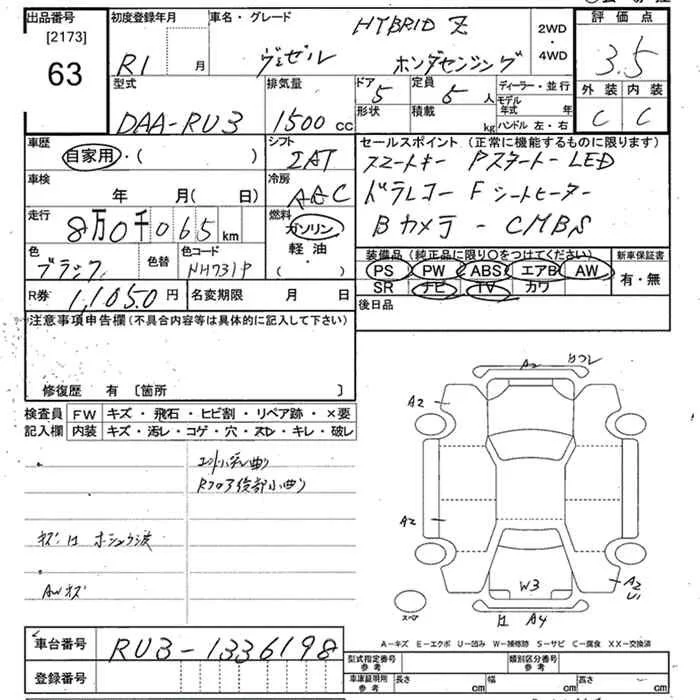 出品番号
[2173]
63
初度登録年月
R1 月
車名・グレード
HYBRID Z
ヴェゼル ホンダセンシング
2WD
・
4WD
評価点
3.5
外装 内装
C C
型式
DAA-RU3
排気量
1500 cc
ドア
5
形状
定員
5 人
積載
kg
ディーラー・並行
モデル
年式 年
ハンドル 左・右
車歴
自家用・( )
シフト
IAT
車検
年 月( 日)
冷房
AAC
走行
8万0千065 km
燃料
ガソリン
軽油
( ・ )
セールスポイント (正常に機能するものに限ります)
スマートキー Pスタート LED
ドラレコー Fシートヒーター
Bカメラ - CMBS
色
ブラック
色替
色コード
NH731P
装備品 (純正品に限り○をつけてください)
PS PW ABS エアB AW
SR ナビ TV カワ
新車保証書
有・無
R券
11,050 円
名変期限 月 日
後日品
注意事項申告欄(不具合内容等は具体的に記入して下さい)
修復歴 有 [箇所 ]
検査員
記入欄
FW キズ・飛石・ヒビ割・リペア跡・×要
内装 キズ・汚レ・コゲ・穴・スレ・キレ・破レ
Rフロア後部小曲り
AWキズ
A2
A2
A2
W3
A2
U1
A4
スペア
A-キズ E-エクボ U-凹み W-補修跡 S-サビ C-腐食 XX-交換済
車台番号
RU3-1336198
登録番号
型式指定番号
参考
類別区分番号
参考
車庫証明用
参考
長さ cm
幅 cm
高さ cm